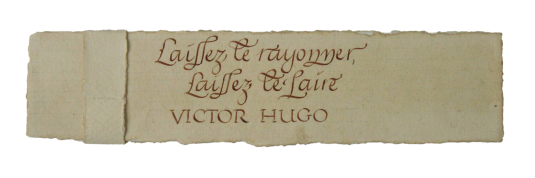 Laissez le rayonner,
Laissez le Laire
VICTOR HUGO